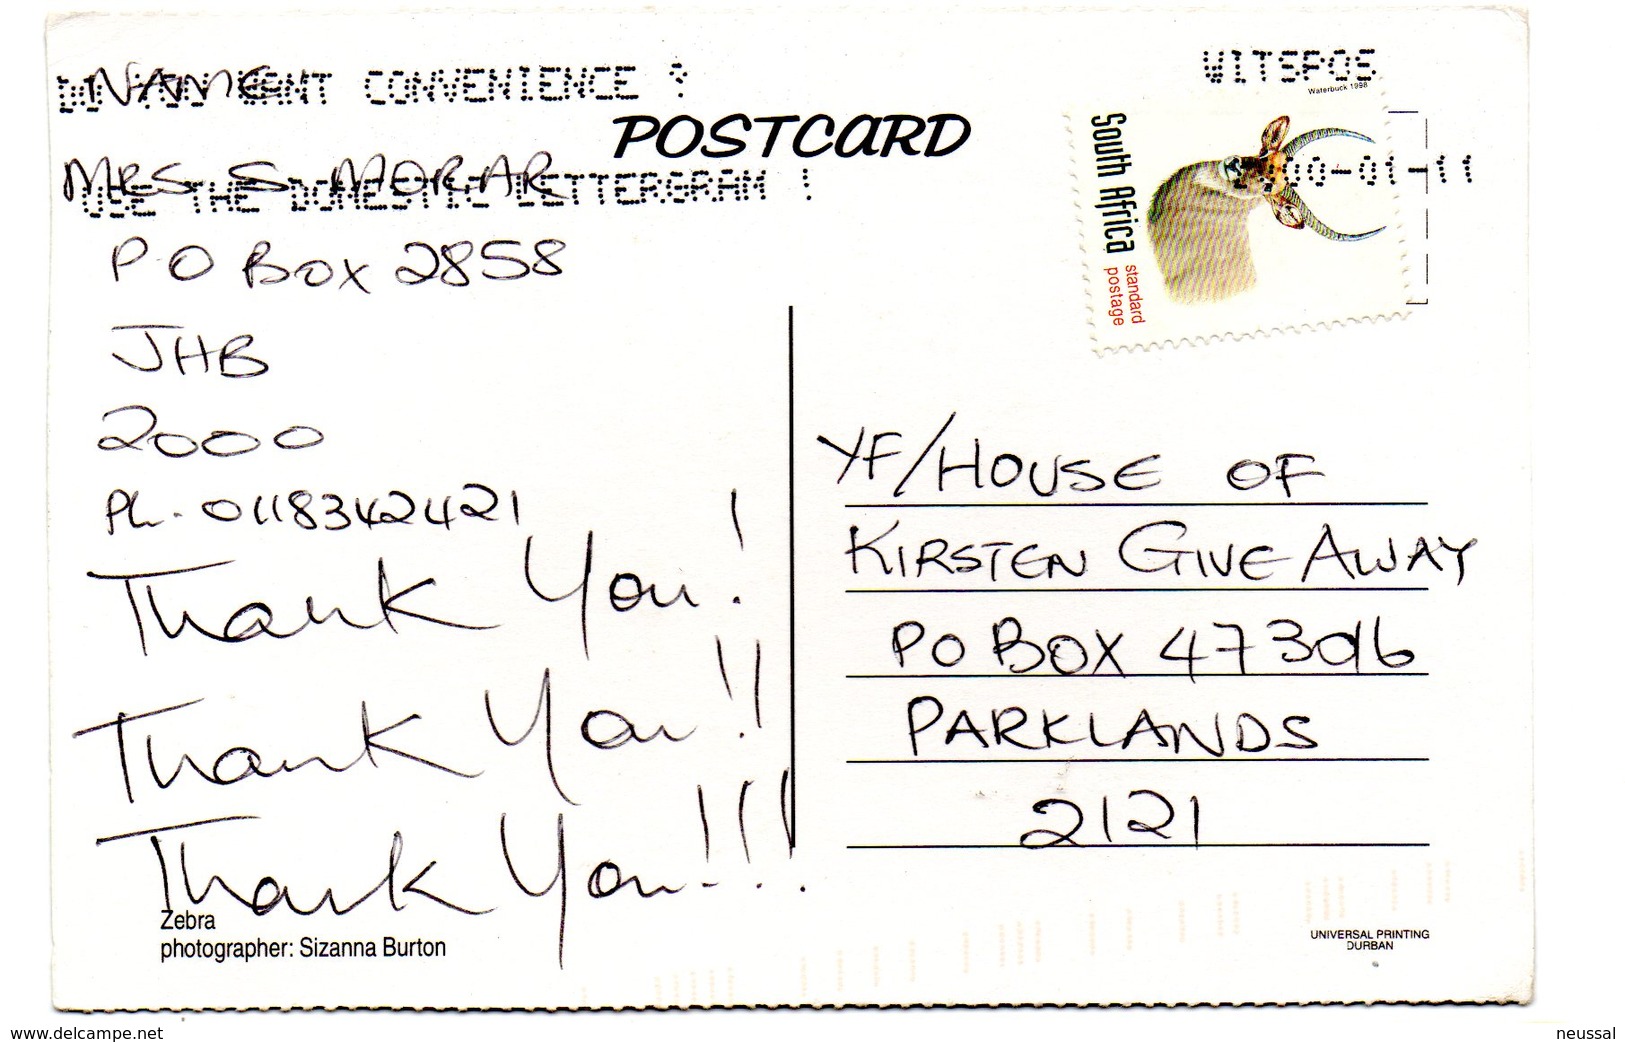 DO YOU WANT CONVENIENCE ?
USE THE DOMESTIC LETTERGRAM !
WITSPOS
00-01-11
Waterbuck 1998
South Africa
standard
postage
POSTCARD
NAME
MRS S. MORAR
P O BOX 2858
JHB
2000
Ph. 0118342421
Thank You!
Thank You!!
Thank You!!!
YF/HOUSE OF
KIRSTEN GIVE AWAY
PO BOX 47306
PARKLANDS
2121
Zebra
photographer: Sizanna Burton
UNIVERSAL PRINTING
DURBAN
www.delcampe.net
neussal